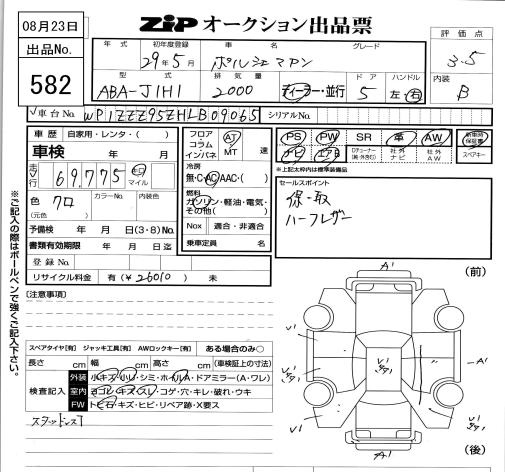 08月23日
ZIP オークション出品票
評価点
3.5
出品No.
582
年式 初年度登録 車名 グレード
29年5月 ポルシェマカン
内装
B
型式 排気量 ドア ハンドル
ABA-J1H1 2000 ディーラー・並行 5 左・右
車台No. WP1ZZZ95ZHLB09065 シリアルNo.
車歴 自家用・レンタ・( )
車検 年 月
走行 69,775 km マイル
色 クロ カラーNo. 内装色
(元色)
予備検 年 月 日(3・8)No.
書類有効期限 年 月 日迄
登録No.
リサイクル料金 有(¥26010)無
フロア
コラム
インパネ
AT
MT 速
冷房
無・C・AC・AAC・( )
燃料
ガソリン・軽油・電気・
その他( )
Nox 適合・非適合
乗車定員 名
PS PW SR 革 AW 新車時保証書
ナビ エアB Dチューナー(純・社外含) 社外ナビ 社外AW スペアキー
※上記太枠内は標準装備品
セールスポイント
保・取
ハーフレザー
※ご記入の際はボールペンで強くご記入下さい。
[注意事項]
スペアタイヤ[有] ジャッキ工具[有] AWロックキー[有] ある場合のみ○
長さ cm 幅 cm 高さ cm (車検証上の寸法)
検査記入
外装 小キズ・小U・シミ・ホイルA・ドアミラー(A・ワレ)
室内 ヨゴレ・キズ・スレ・コゲ・穴・キレ・破れ・ウキ
FW トビ石・キズ・ヒビ・リペア跡・X要ス
スタッドレス
(前)
A1
A1
A1
(後)